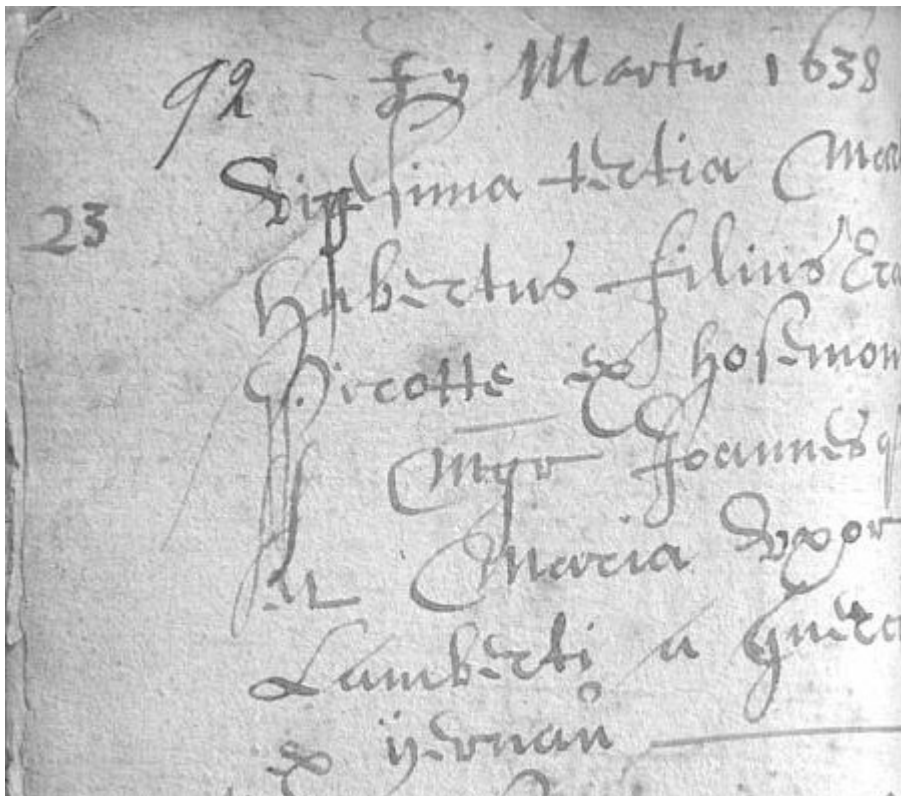 92 Martio 1638
23 Vigesima tertia Mar
Hubertus filius Era
Picotte ex Hosemon
P Mgr Joannes
M Maria Vxor
Lamberti a
ex yernau